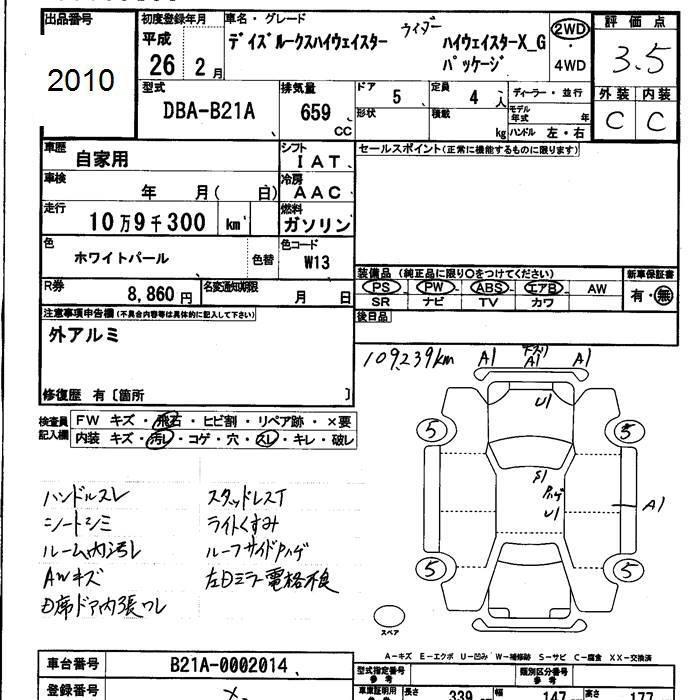 出品番号
2010
初度登録年月
平成
26 2 月
車名・グレード
デイズルークスハイウェイスター
ライダー
ハイウェイスターX_G
パッケージ
2WD
・
4WD
評価点
3.5
外装 内装
C C
型式
DBA-B21A
排気量
659
CC
ドア 5
定員 4 人
形状
積載 kg
ディーラー・並行
モデル年式 年
ハンドル 左・右
車歴 自家用
シフト IAT
セールスポイント(正常に機能するものに限ります)
車検 年 月( 日)
冷房 AAC
走行 10万9千300 km
燃料 ガソリン
色 ホワイトパール 色替
色コード W13
R券 8,860円
名変通知期限 月 日
装備品(純正品に限り○をつけてください)
PS PW ABS エアB AW
SR ナビ TV カワ
新車保証書
有・無
後日品
注意事項申告欄(不具合内容等は具体的に記入して下さい)
外アルミ
修復歴 有〔箇所 〕
109,239km
A1 A1 A1
U1
5 5
S1
Pハゲ
U1
A1
5 5
スペア
検査員
記入欄
FW キズ・飛石・ヒビ割・リペア跡・×要
内装 キズ・汚レ・コゲ・穴・スレ・キレ・破レ
ハンドルスレ スタッドレスT
シートシミ ライトくすみ
ルーム内汚レ ルーフサイドPハゲ
AWキズ 左Dミラー電格不良
D席ドア内張スレ
A-キズ E-エクボ U-凹み W-補修跡 S-サビ C-腐食 XX-交換済
車台番号 B21A-0002014
型式指定番号
参考
類別区分番号
参考
登録番号
車庫証明用
参考
長さ 339 幅 147 高さ 177